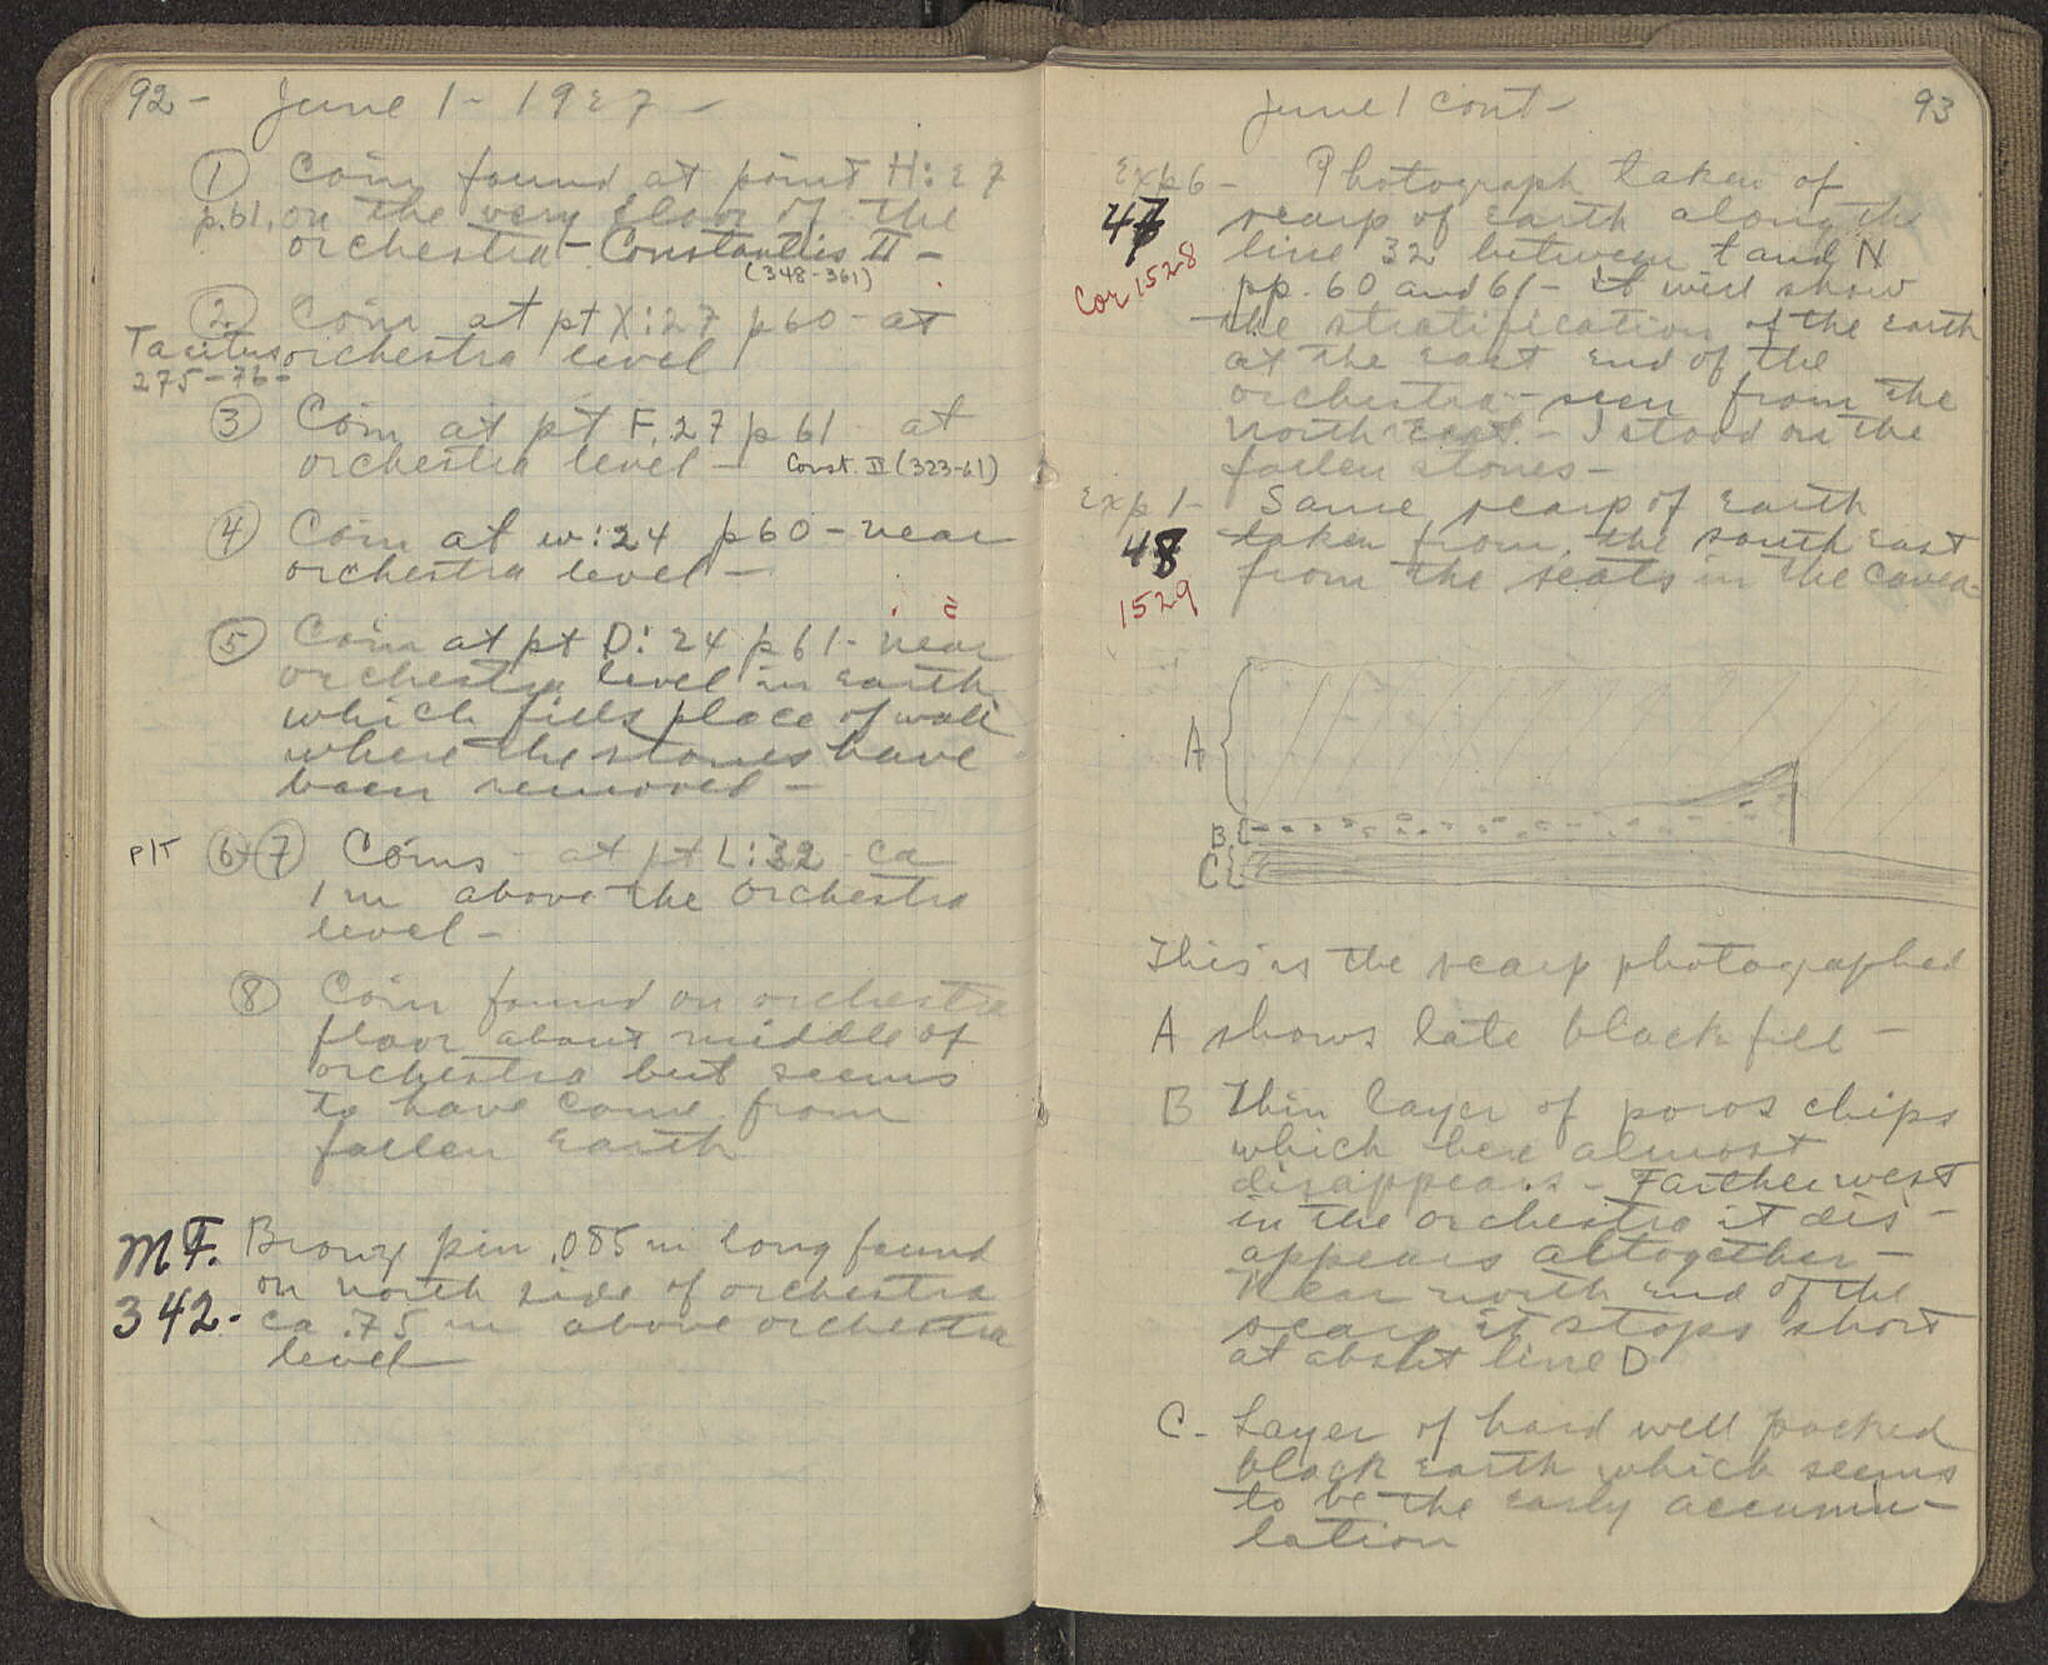 92 - June 1 - 1927 -
① Coin found at point H:27
p.61. on the very floor of the
orchestra - Constantius II -
(348-361)
② Coin at pt X:27 p60 - at
Tacitus orchestra level
275-76-
③ Coin at pt F.27 p 61 at
orchestra level - Const. II (323-61)
④ Coin at w:24 p60 - near
orchestra level -
⑤ Coin at pt D:24 p61 - near
orchestra level in earth
which fills place of wall
where the stones have
been removed -
⑥+⑦ Coins - at pt L:32 - ca
1 m above the orchestra
level -
⑧ Coin found on orchestra
floor about middle of
orchestra but seems
to have come from
fallen earth
M F. Bronze pin .085 m long found
on north side of orchestra
342. ca .75 m above orchestra
level
June 1 cont - 93
Exp 6 - Photograph taken of
47 scarp of earth along the
line 32 between t and N
Cor 1528 pp. 60 and 61 - it will show
the stratification of the earth
at the east end of the
orchestra - seen from the
north east. - I stood on the
fallen stones -
Exp 1 - Same scarp of earth
48 taken from the south east
from the seats in the cavea -
1529
A
B
C
This is the scarp photographed
A shows late black fill -
B Thin layer of poros chips
which here almost
disappears - Farther west
in the orchestra it dis-
appears altogether -
Near north end of the
scarp it stops short
at about line D
C - Layer of hard well packed
black earth which seems
to be the early accumu-
lation